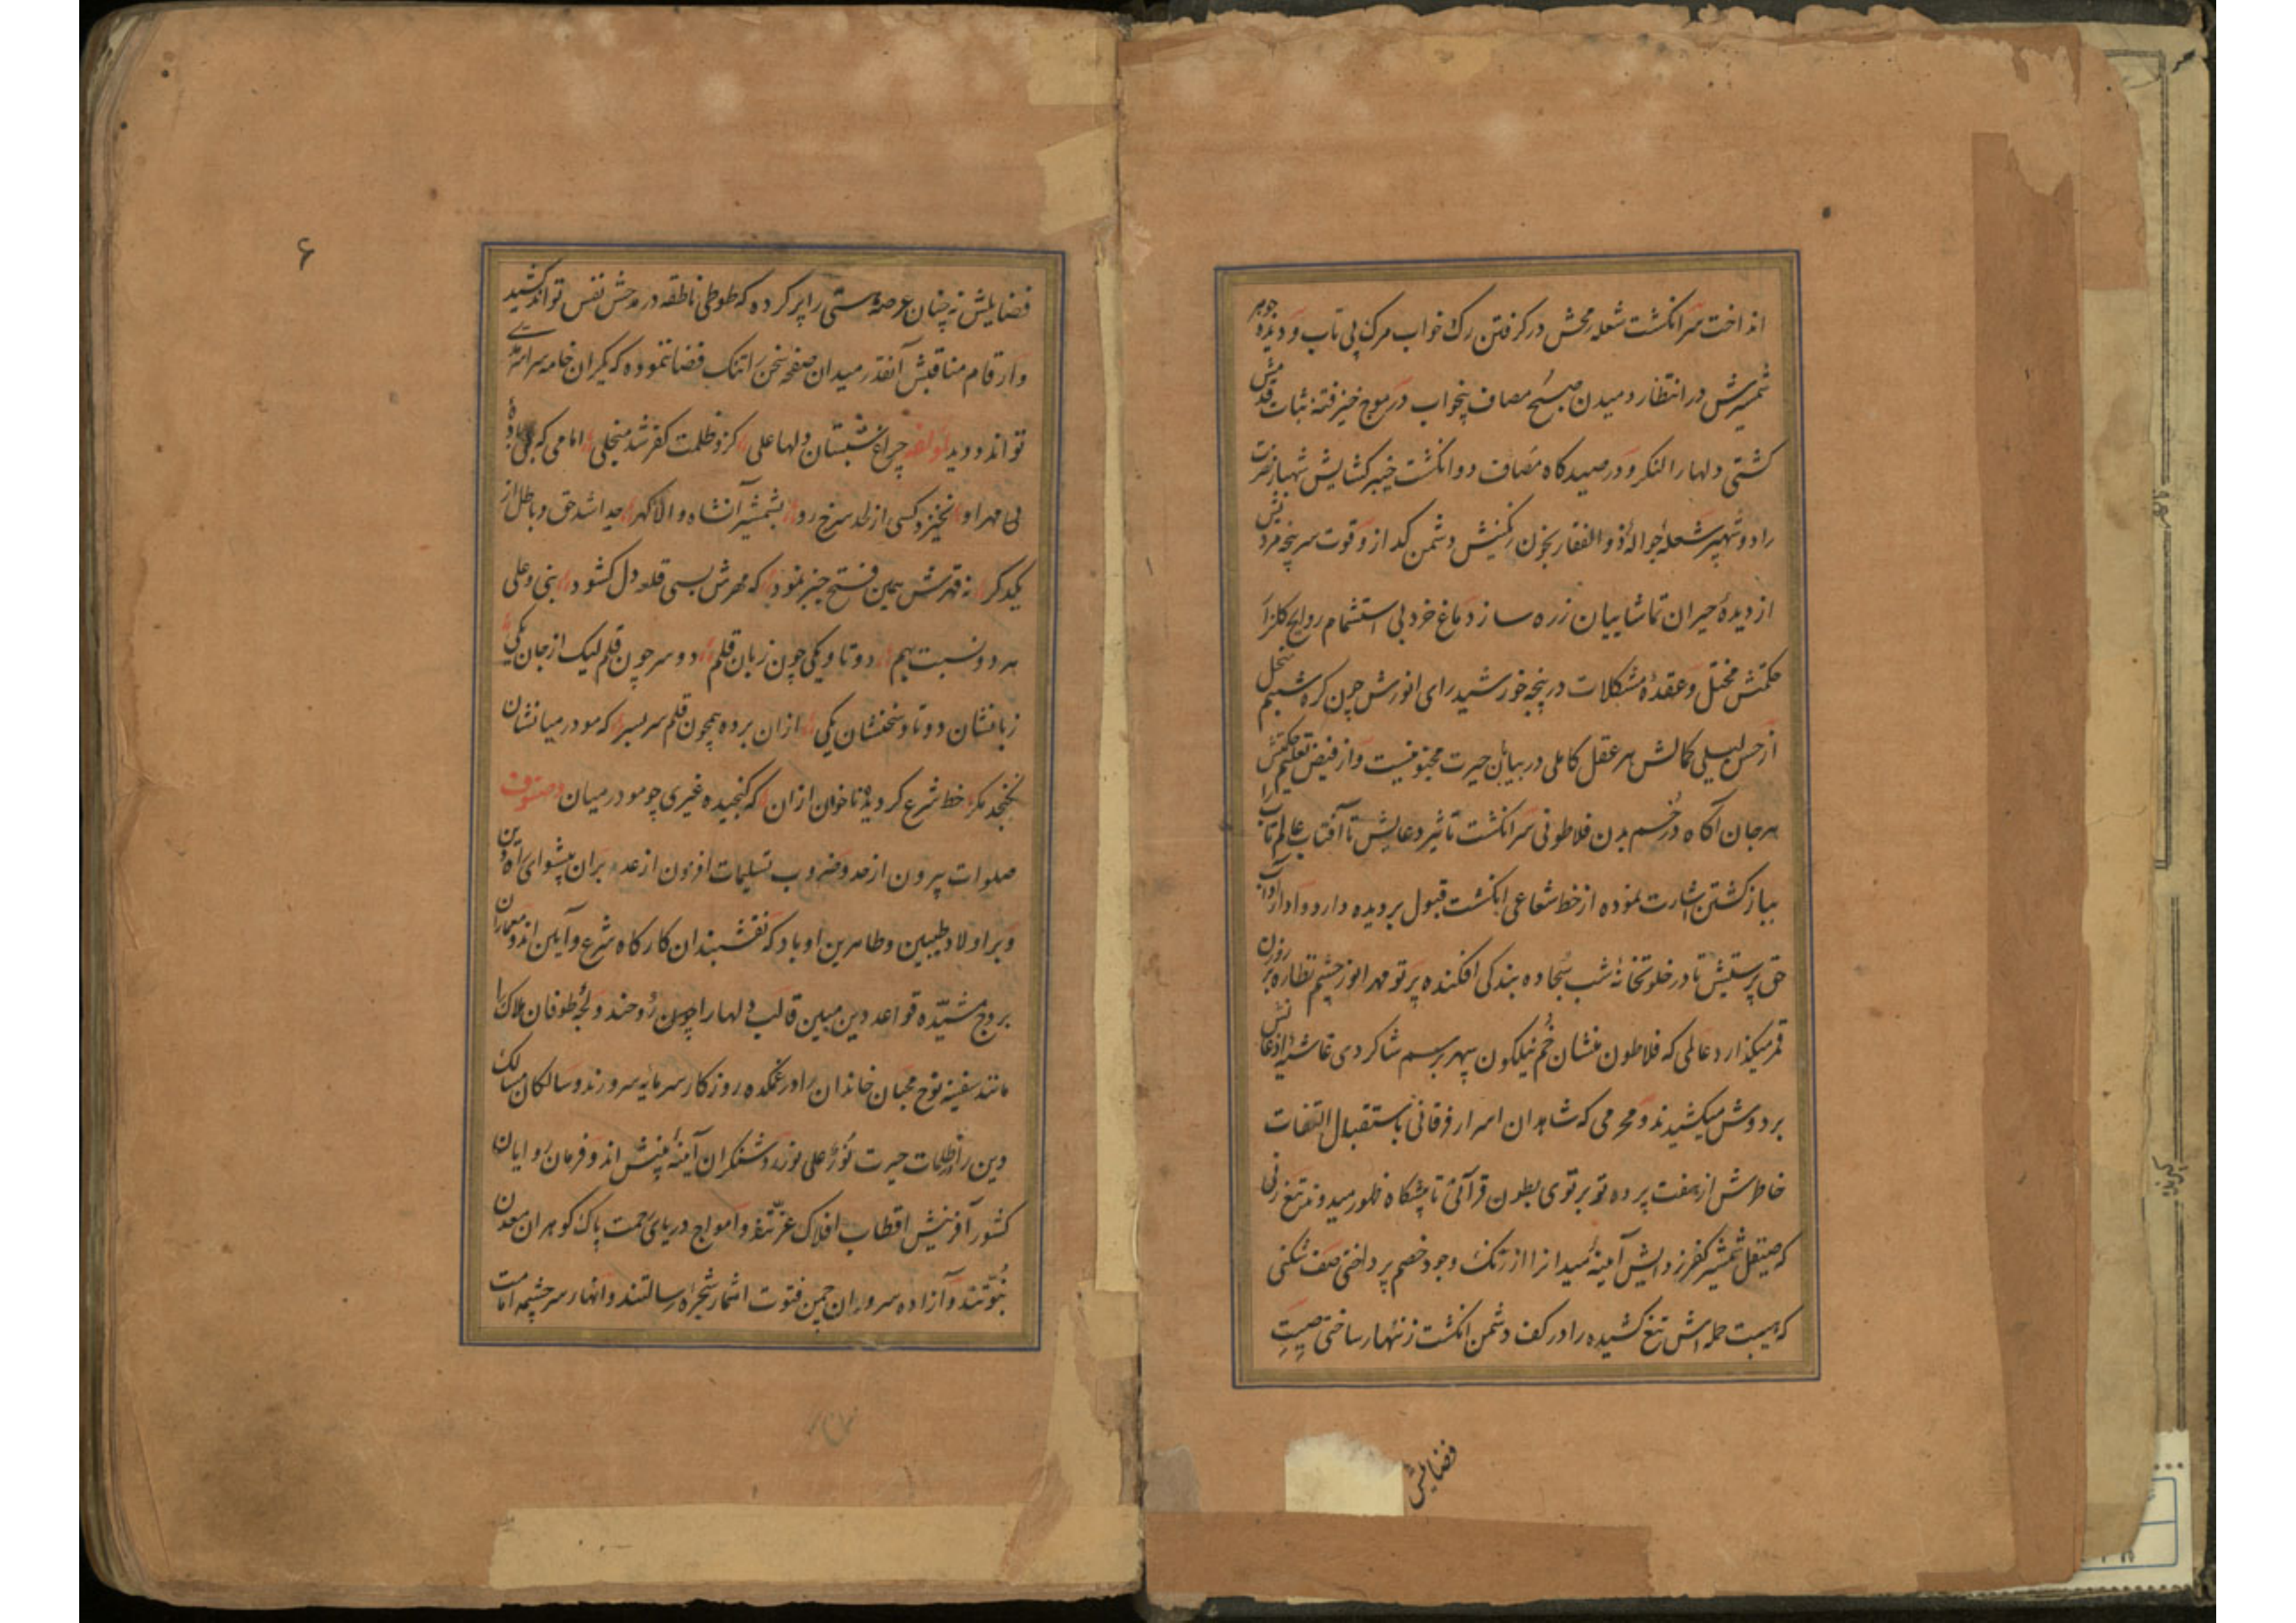 انداخت سر انکشت شعله رمحش در کرفتن رک خواب مرک پی تاب و دیده جوهر
شمشیرش در انتظار دمیدن صبح مصاف پنجواب در موج خیز فتنه ثبات قدمش
کشتی دلها را لنکر و در صیدکاه مصاف دو انکشت خیبر کشایش شهباز نصرت
را دو شهپر شعله جواله ذو الفقار بخون رنکینش دشمن کداز و قوت سر پنجه مردیش
از دیده حیران تماشاییان زره ساز دماغ خرد بی استشمام روایح کلزار
حکمتش مختل و عقده مشکلات در پنجه خورشید رای انورش چون کره شبنم منحل
از حسن لیلی کمالش هر عقل کاملی در بیابان حیرت مجنونیست و از فیض تعلیم حکمتش
هر جان آکاه در خم بدن فلاطونی سر انکشت تاثیر دعایش تا آفتاب عالم تاب را
بباز کشتن اشارت نموده از خط شعاعی انکشت قبول بر دیده دارد و ادای آداب
حق پرستیش تا در خلوتخانه شب سجاده بندکی افکنده پرتو مهر انور چشم نظاره بر روزن
قمر میکذارد عالمی که فلاطون منشان خم نیلکون سپهر برسم شاکردی غاشیه اذعانش
بر دوش میکشیدند و محرمی که شاهدان اسرار فرقانی باستقبال التفات
خاطرش از هفت پرده تو بر توی بطون قرآنی تا پیشکاه ظهور میدوند تیغ زنی
که صیقل شمشیر کفر زدایش آینه میدانرا از زنک وجود خصم پرداختی صف شکنی
که هیبت حمله اش تیغ کشیده را در کف دشمن انکشت زنهار ساختی صیت
فضایلش
۶
فضایلش نه چنان عرصه هستی را پر کرده که طوطی ناطقه در مدحش نفس تواند کشید
و ارقام مناقبش آنقدر میدان صفحه سخن را تنک فضا ننموده که یکران خامه سراسری
تواند دوید لمؤلفه چراغ شبستان دلها علی کزو ظلمت کفر شد منجلی امامی که بی باده
بی مهر او نخیزد کسی از لحد سرخ رو بشمشیر آنشاه والا کهر جدا شد حق و باطل از
یکدکر نه قهرش همین فتح خیبر نمود که مهرش بسی قلعه دل کشود نبی و علی
هر دو نسبت بهم دو تا و یکی چون زبان قلم دو سر چون قلم لیک از جان یکی
زبانشان دو تا و سخنشان یکی ازان برده همچون قلم سر بسر که مو در میانشان
نکنجد مکر خط شرع کردیده ناخوان ازان که کنجیده غیری چو مو در میان صنوف
صلوات بیرون از حد و ضروب تسلیمات افزون از عد بران پیشوای راه دین
و بر اولاد طیبین و طاهرین او باد که نقشبندان کارکاه شرع و آیین اند و معماران
بروج مشیده قواعد دین مبین قالب دلها را چون روحند و لجه طوفان هلاک را
مانند سفینه نوح محبان خاندان را در غمکده روزکار سرمایه سرورند و سالکان مسالک
دین را در ظلمات حیرت نور علی نورند روشنکران آینه بینش اند و فرمان روایان
کشور آفرینش اقطاب افلاک عزتند و امواج دریای رحمت پاک کوهران معدن
نبوتند و آزاده سروران چمن فتوت اثمار شجره رسالتند و انهار سر چشمه امامت